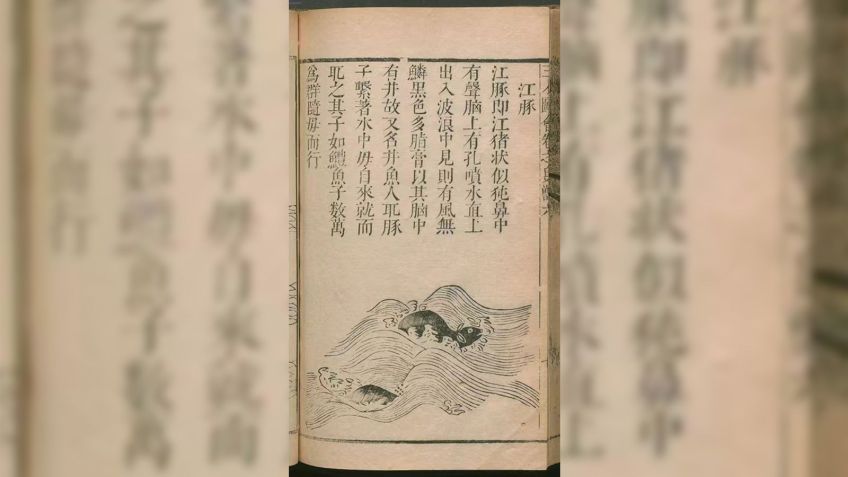 江豚
江豚即江猪状似㹠鼻中
有聲腦上有孔噴水直上
出入波浪中見則有風無
鱗黑色多脂膏以其腦中
有井故又名井魚人取豚
子繫著水中母自來就而
取之其子如鱧魚子數萬
爲群隨母而行